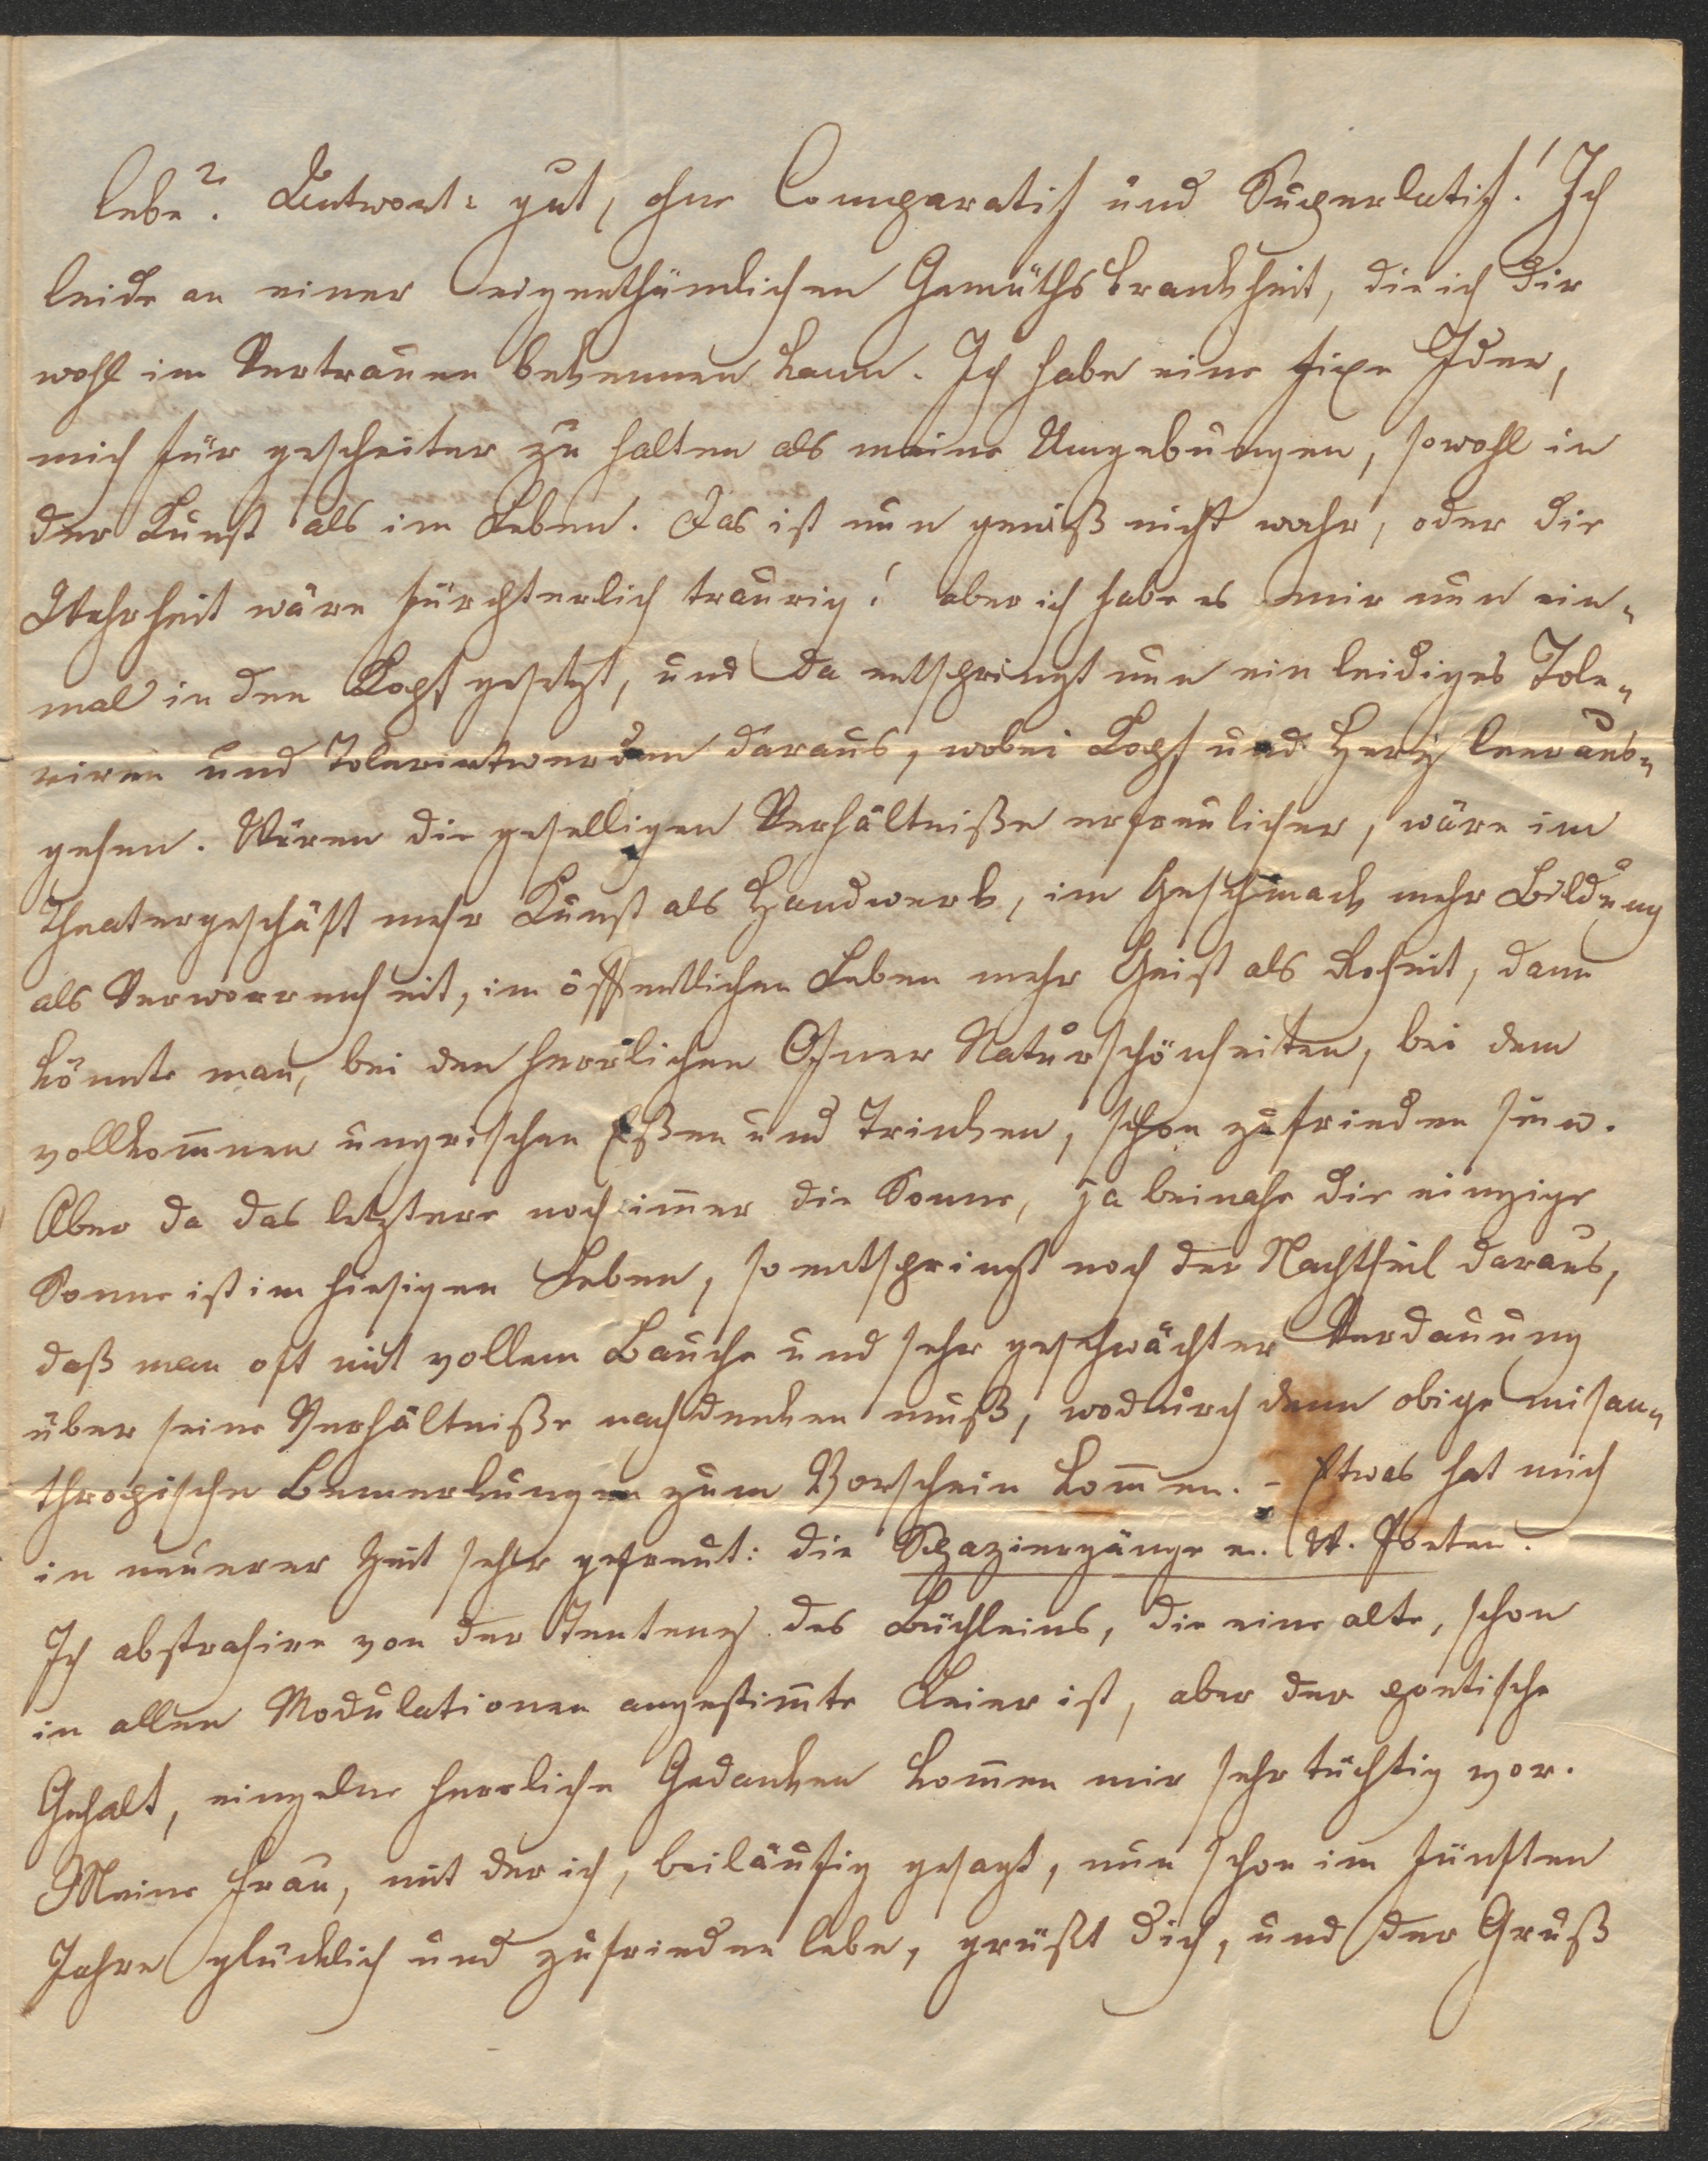 lebe? Antwort: gut, ohne Comparatif und Superlatif! Ich
leide an einer eigenthümlichen Gemüthskrankheit, die ich dir
wohl im Vertrauen bekennen kann. Ich habe eine fixe Idee,
mich für gescheiter zu halten als meine Umgebungen, sowohl in
der Kunst als im Leben. Das ist nun gewiß nicht wahr, oder die
Wahrheit wäre fürchterlich traurig! aber ich habe es mir nun ein-
mal in den Kopf gesetzt, und da entspringt nun ein leidiges Tole-
riren und Tolerirtwerden daraus, wobei Kopf und Herz leer aus-
gehen. Wären die geselligen Verhältniße erfreulicher, wäre im
Theatergeschäft mehr Kunst als Handwerk, im Geschmack mehr Bildung
als Verworrenheit, im öffentlichen Leben mehr Geist als Roheit, dann
könnte man, bei den herrlichen Ofner Naturschönheiten, bei dem
vollkom̄nen ungrischen Eßen und Trinken, schon zufrieden sein.
Aber da das letztere noch im̄er die Sonne, ja beinahe die einzige
Sonne ist im hiesigen Leben, so entspringt noch der Nachtheil daraus,
daß man oft mit vollem Bauche und sehr geschwächter Verdauung
über seine Verhältniße nachdenken muß, wodurch denn obige misan-
thropische Bemerkungen zum Vorschein kom̄en. - Etwas hat mich
in neuerer Zeit sehr gefreut: die Spaziergänge e. W. Poeten.
Ich abstrahire von der Tentenz des Büchleins, die eine alte, schon
in allen Modulationen angestim̄te Leier ist, aber der poetische
Gehalt, einzelne herrliche Gedanken kom̄en mir sehr tüchtig vor.
Meine Frau, mit der ich, beiläufig gesagt, nun schon im fünften
Jahre glücklich und zufrieden lebe, grüßt dich, und der Gruß